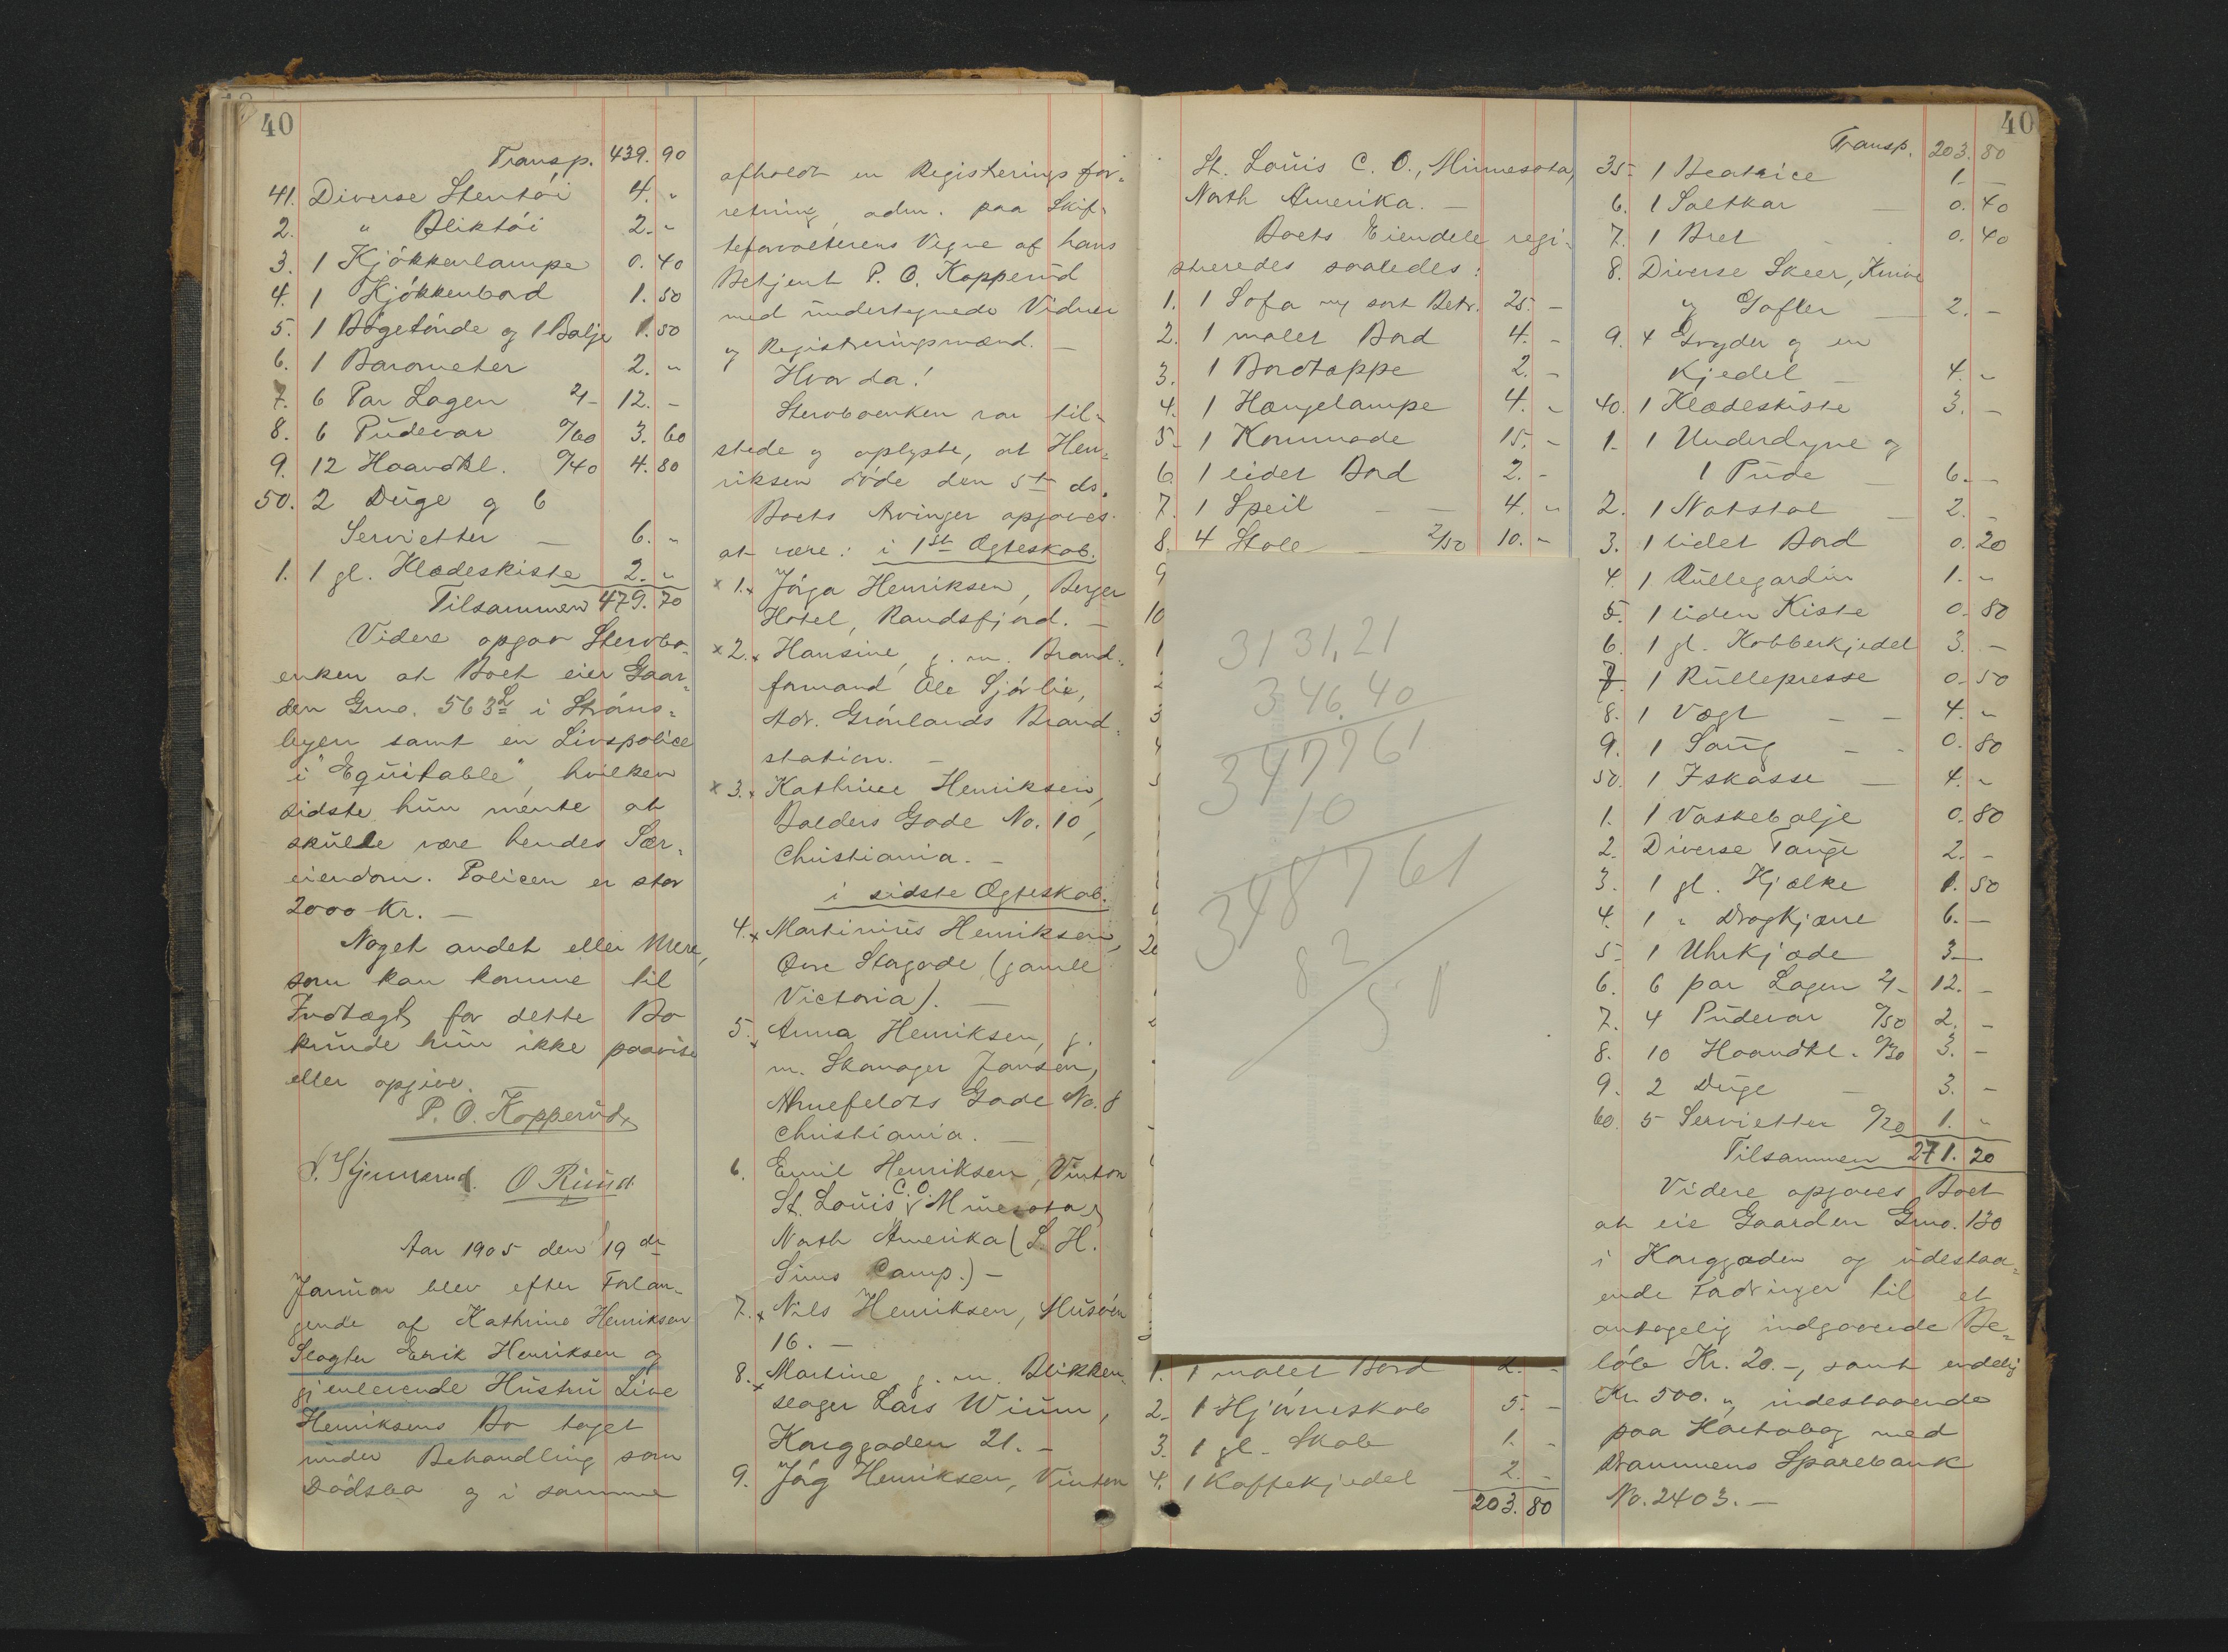 40
Transp. 439. 90
41. Diverse Stentöi 4. "
2. " Bliktöi 2. "
3. 1 Kjökkenlampe 0. 40
4. 1 Kjökkenbord 1. 50
5. 1 Bögetönde og 1 Balje 1. 50
6. 1 Barometer 2. "
7. 6 Par Lagen 2/- 12. -
8. 6 Pudevar 0/60 3. 60
9. 12 Haandkl. 0/40 4. 80
50. 2 Duge og 6
Servietter — 6. "
1. 1 gl. Klædeskiste 2. "
Tilsammen 479. 70
Videre opgav Stervbo-
enken at Boet eier Gaar-
den Grno. 563 L i Ströms-
legen samt en Livspolice
i "Equitable", hvilken
sidste hun mente at
skulle være hendes Sær-
eiendom. Policen er stor
2000 Kr. —
Noget andet eller mere,
som kan komme til
Indtægt for dette Bo
kunde hun ikke paavise
eller opgive.
P. O. Kopperud
O Ruud.
Aar 1905 den 19 de
Januar blev efter Forlan-
gende af Kathrine Henriksen
Slagter Erik Henriksen og
gjenlevende Hustru Live
Henriksens Bo taget
under Behandling som
Dödsbo og i samme
afholdt en Registrerings for-
retning, adm. paa Skif-
teforvalterens Vegne af hans
Betjent P. O. Kopperud
med undertegnede Vidner
og Registreringsmænd. —
Hvor da!
Stervboenken var til-
stede og oplyste, at Hen-
riksen döde den 5te ds.
Boets Arvinger opgaves
at være: i 1ste Ægteskab.
x 1. x Jörga Henriksen, Berger
Hotel, Randsfjord. —
x 2. x Hansine, g. m. Brand-
formand Ole Sjölie,
Adr. Grönlands Brand-
station. —
x 3. x Kathrine Henriksen,
Balders Gade No. 10,
Christiania. —
i sidste Ægteskab.
4. x Martinius Henriksen,
Övre Storgade (gamle
Victoria). —
5. x Anna Henriksen, g.
m. Skomager Jansen,
Ahnefeldts Gade No. 8
Christiania. —
6. Emil Henriksen, Vinton
St. Louis C. O. Minesota,
North Amerika (L. H.
Sims Camp.) —
7. x Nils Henriksen, Husöen
16. —
8. x Martine g. m. Blikken-
slager Lars Wium,
Konggaden 21. —
9. Jög Henriksen, Vinton
St. Louis C. O., Minnesota,
North Amerika. —
Boets Eiendele regi-
streredes saaledes:
1. 1 Sofa m/ sort Betr. 25. —
2. 1 malet Bord 4. -
3. 1 Bordtæppe 2. -
4. 1 Hængelampe 4. "
5. 1 Kommode 15. -
6. 1 lidet Bord 2. -
7. 1 Speil — — 4. "
8. 4 Stole — 2/50 10. "
9
10
1
2
3
4
5
20
3131,21
346.40
347761
10
348761
82
1. 1 malet Bord 2. -
2. 1 Hjörneskab 5. -
3. 1 gl. Skab 1. -
4. 1 Kaffekjedel 2. -
203. 80
40
Transp. 203. 80
35. 1 Beatrice 1. —
6. 1 Saltkar — 0. 40
7. 1 Bret - - 0. 40
8. Diverse Skeer, Knive
og Gafler — 2. -
9. 4 Gryder og en
Kjedel — 4. "
40. 1 Klædeskiste 3. —
1. 1 Underdyne og
1 Pude — 6. -
2. 1 Natstol — 2. -
3. 1 lidet Bord 0. 20
4. 1 Rullegardin 1. "
5. 1 liden Kiste 0. 80
6. 1 gl. Kobberkjedel 3. —
7. 1 Rullepresse 0. 50
8. 1 Vægt — — 4. "
9. 1 Saug — - 0. 80
50. 1 Iskasse — 4. "
1. 1 Vaskebalje 0. 80
2. Diverse Tauge 2. -
3. 1 gl. Kjælke 1. 50
4. 1 " Dragkjærre 6. —
5. 1 Uhrkjæde 3 —
6. 6 par Lagen 2/- 12. -
7. 4 Pudevar 0/50 2. -
8. 10 Haandkl. 0/30 3. -
9. 2 Duge — 3. -
60. 5 Servietter 0/20 1. "
Tilsammen 271. 20
Videre opgaves Boet
at eie Gaarden Grno. 130
i Konggaden og udestaa-
ende Fordringer til et
antagelig indgaaende Be-
löb Kr. 20. -, samt endelig
Kr. 500. " indestaaende
paa Kontobog med
Drammens Sparebank
No. 2403. —